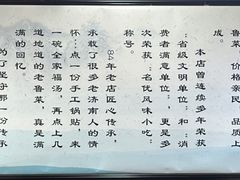 鲁菜，价格亲民，
成。
本店曾连续多年荣获
：省级文明单位：和：消
费者满意单位：更是多
次荣获：名优风味小吃：
称号。
84年老店匠心传承，
承载了很多老济南人的情
怀…点一份手工锅贴，来
一碗全家福汤，再点上几
道地道的老鲁菜，真是满
满的回忆
为了坚守那一份传承